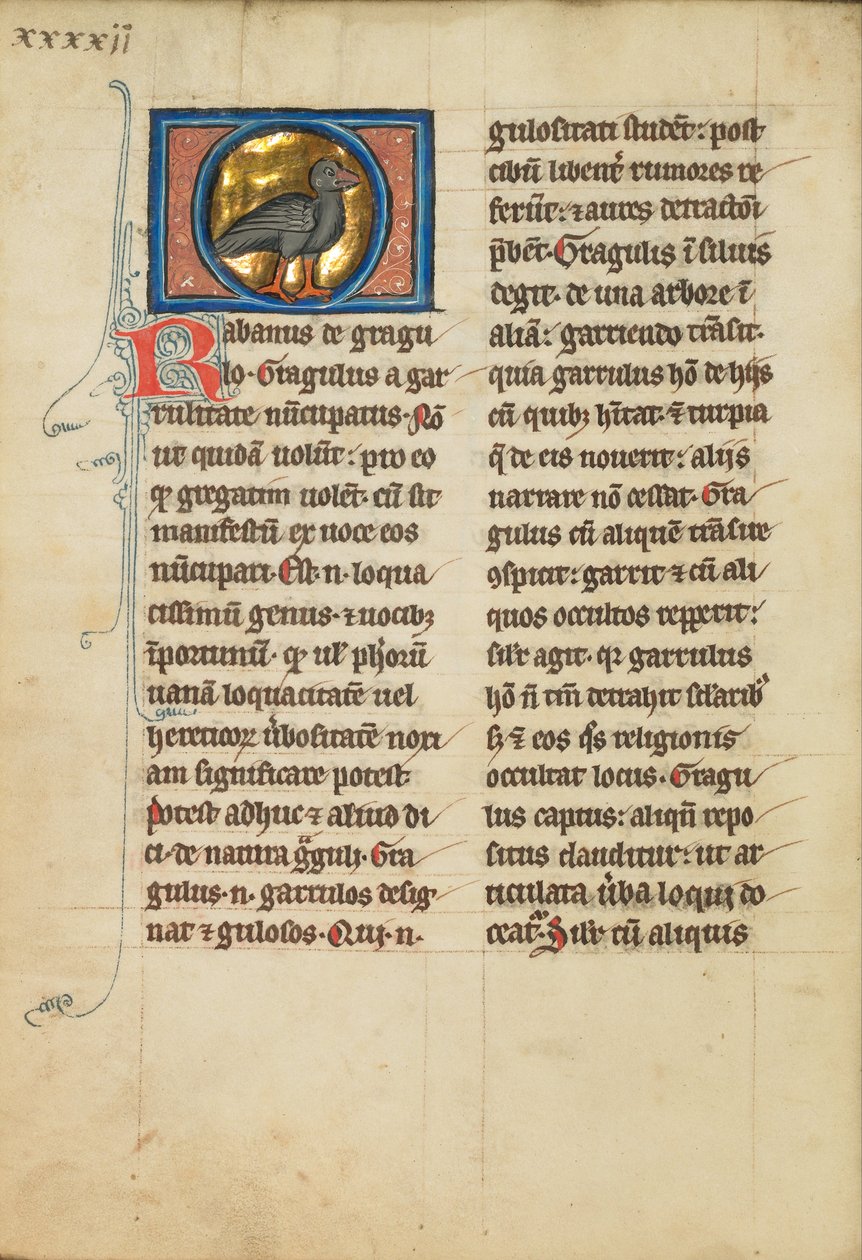 xxxxii
Rabanus de gragu
lo. Gragulus a gar
rulitate nūcupatus. Nō
ut quidā uolūt: pro eo
qꝫ gregatim uolēt. cū sit
manifestū ex uoce eos
nūcupari. Est .n. loqua
cissimū genus. ⁊ uocibꝫ
īportunū. qꝫ ul̕ ph̕orū
uanā loquacitatē uel
hereticoꝝ ůbositatē noxi
am significare potest.
Potest adhuc ⁊ aliud di
ci. de natura gͣguli. Gra
gulus .n. garrulos desig
nat ⁊ gulosos. Qui .n.
gulositati studēt: post
cibū libent̕ rumores re
ferūt: ⁊ aures detractōi
p̄bēt. Gragulis ī siluis
degit. de una arbore ī
aliā: garriendo trāsit.
quia garrulus hō de hijs
cū quibꝫ hītat. ⁊ turpia
q̄ de eis nouerit: alijs
narrare nō cessat. Gra
gulus cū aliquē trāsire
ꝯspicit: garrit ⁊ cū ali
quos occultos repperit:
sil̕r agit. qr garrulus
hō n̄ tm̄ detrahit sc̄larib᷒
sꝫ ⁊ eos q̕s religionis
occultat locus. Gragu
lus captus: aliqn̄ repo
situs clauditur: ut ar
ticulata ůba loqui do
ceatᷣ. Sil̕r cū aliquis